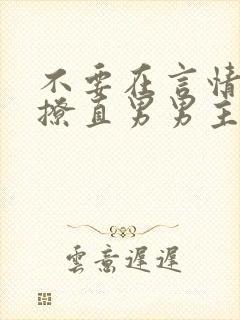 不要在言情
撩直男男主
雲意遲遲